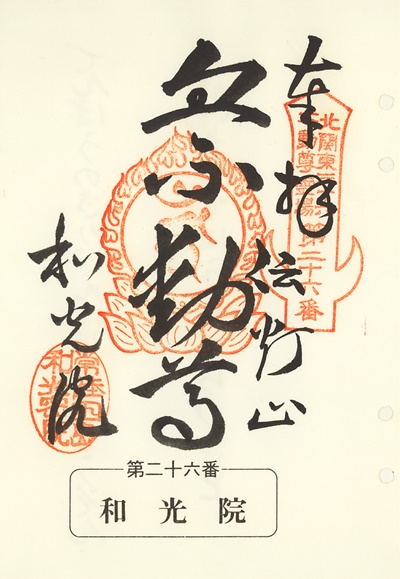 奉拝 伝灯山
血不動尊
和光院
北関東
不動尊霊場
第二十六番
和光院
第二十六番
和光院